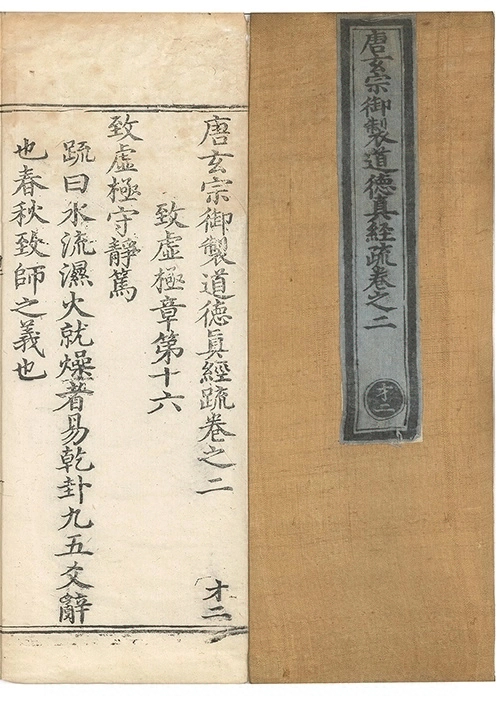 唐玄宗御製道德真経疏卷之二
才二
唐玄宗御製道德眞經疏卷之二
才二
致虛極章第十六
致虛極守靜篤
疏曰水流濕火就燥者易乾卦九五爻辭
也春秋致師之義也